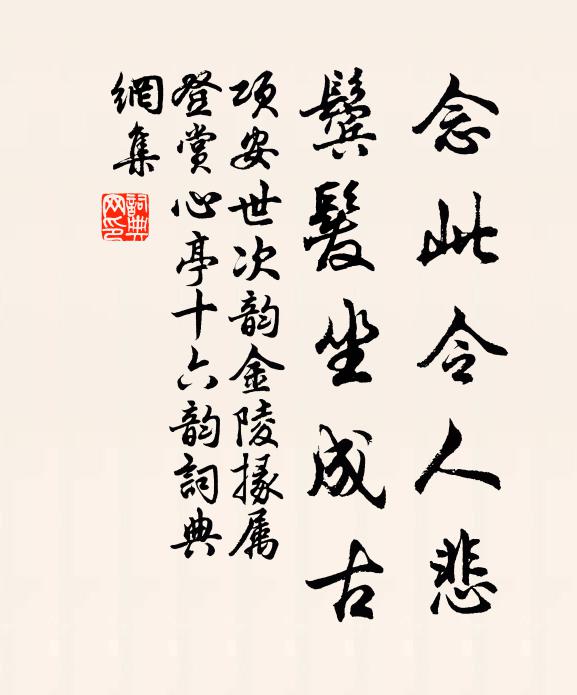 念此令人悲
鬓髮坐成古
项安世次韵金陵掾属
登赏心亭十六韵詞典
網集
詞典
网印